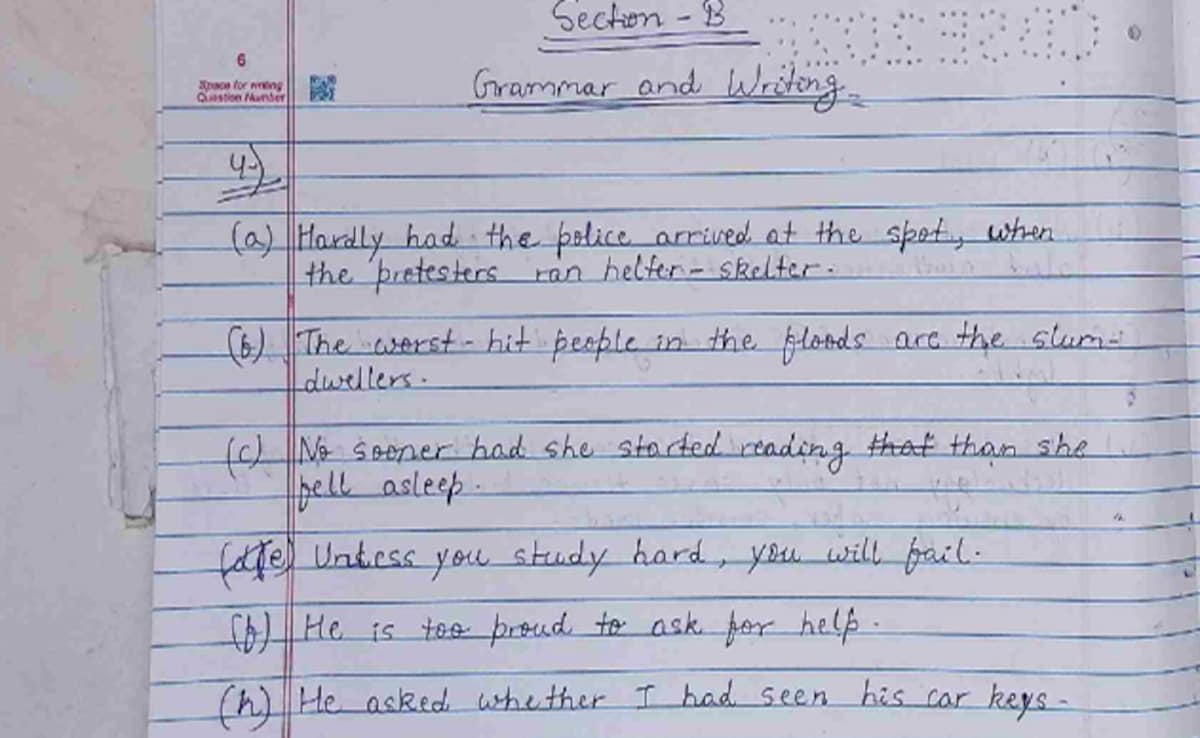 Section - B
6
Space for writing
Question Number
Grammar and Writing
4)
(a) Hardly had the police arrived at the spot, when
the protesters ran helter-skelter.
(b) The worst-hit people in the floods are the slum-
dwellers.
(c) No sooner had she started reading that than she
fell asleep.
(e) Unless you study hard, you will fail.
(f) He is too proud to ask for help.
(h) He asked whether I had seen his car keys.